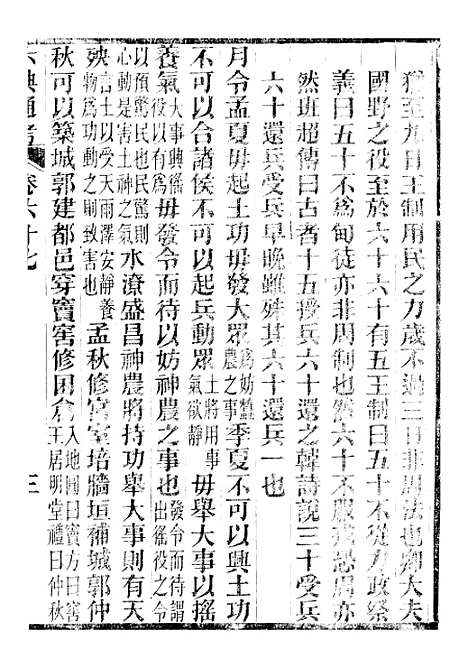 猶至九日王制用民之力歲不過三日非周法也鄉大夫
國野之役至於六十六十有五王制曰五十不從力政祭
義曰五十不爲甸徒亦非周制也然六十不服戎恐周亦
然班超傳曰古者十五授兵六十還之韓詩說三十受兵
六十還兵受兵早晚雖殊其六十還兵一也
月令孟夏毋起土功毋發大眾爲妨蠶農之事季夏不可以興土功
不可以合諸侯不可以起兵動眾土將用事氣欲靜毋舉大事以搖
養氣大事興徭役以有爲毋發令而待以妨神農之事也發令而待謂出徭役之令
以預驚民也民驚則心動是害土神之氣水潦盛昌神農將持功舉大事則有天
殃言土以天雨澤安靜養物爲功動之則致害也孟秋修宮室培牆垣補城郭仲
秋可以築城郭建都邑穿竇窖修囷倉入地圓曰竇方曰窖王居明堂禮曰仲秋
六典通考
卷六十七
三